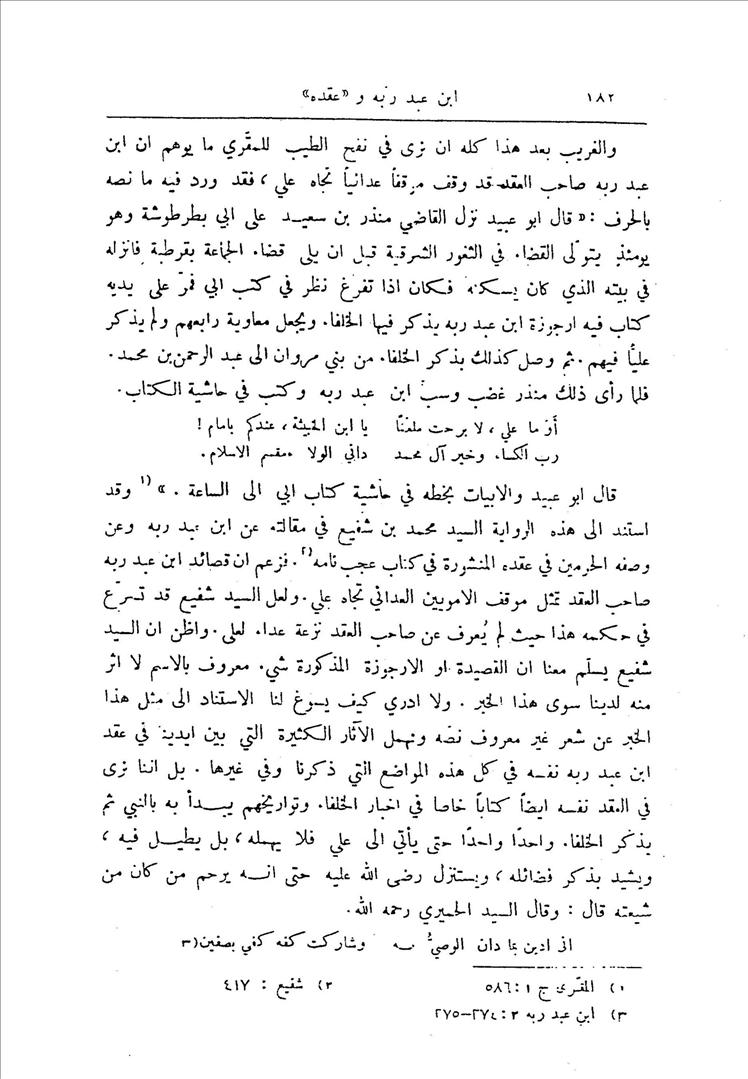 ١٨٢ ابن عبد ربه و «عقده»
والغريب بعد هذا كله ان نرى في نفح الطيب للمقَّري ما يوهم ان ابن
عبد ربه صاحب العقد قد وقف موقفاً عدائياً تجاه علي ، فقد ورد فيه ما نصه
بالحرف : «قال ابو عبيد نزل القاضي منذر بن سعيد على ابي بطرطوشة وهو
يومئذٍ يتولَّى القضاء في الثغور الشرقية قبل ان يلي قضاء الجماعة بقرطبة فانزله
في بيته الذي كان يسكنه فكان اذا تفرغ نظر في كتب ابي فمرّ على يديه
كتاب فيه ارجوزة ابن عبد ربه يذكر فيها الخلفاء ويجعل معاوية رابعهم ولم يذكر
عليًّا فيهم . ثم وصل كذلك بذكر الخلفاء من بني مروان الى عبد الرحمن بن محمد .
فلما رأى ذلك منذر غضب وسبَّ ابن عبد ربه وكتب في حاشية الكتاب .
أوَ ما علي ، لا برحت ملعناً يا ابن الخبيثة ، عندكم بامام !
رب الكساء وخير آل محمد داني الولاء مقسم الاسلام .
قال ابو عبيد والابيات بخطه في حاشية كتاب ابي الى الساعة . » ١) وقد
استند الى هذه الرواية السيد محمد بن شفيع في مقالته عن ابن عبد ربه وعن
وصفه الحرمين في عقده المنشورة في كتاب عجب نامه ٢) . فزعم ان قصائد ابن عبد ربه
صاحب العقد تمثل موقف الامويين العدائي تجاه علي . ولعل السيد شفيع قد تسرّع
في حكمه هذا حيث لم يُعرف عن صاحب العقد نزعة عداء لعلي . واظن ان السيد
شفيع يسلّم معنا ان القصيدة او الارجوزة المذكورة شيء معروف بالاسم لا اثر
منه لدينا سوى هذا الخبر . ولا ادري كيف يسوغ لنا الاستناد الى مثل هذا
الخبر عن شعر غير معروف نصّه ونهمل الآثار الكثيرة التي بين ايدينا في عقد
ابن عبد ربه نفسه في كل هذه المواضع التي ذكرنا وفي غيرها . بل اننا نرى
في العقد نفسه ايضاً كتاباً خاصا في اخبار الخلفاء وتواريخهم يبدأ به بالنبي ثم
يذكر الخلفاء واحدًا واحدًا حتى يأتي الى علي فلا يهمله ، بل يطيل فيه ،
ويشيد بذكر فضائله ، ويستنزل رضى الله عليه حتى انه يرحم من كان من
شيعته قال : وقال السيد الحميري رحمه الله .
اني ادين بما دان الوصيُّ به وشاركت كفه كفي بصفين ٣)
١) المقّري ج ١ : ٥٨٦ ٢) شفيع : ٤١٧
٣) ابن عبد ربه ٢ : ٢٧٤–٢٧٥